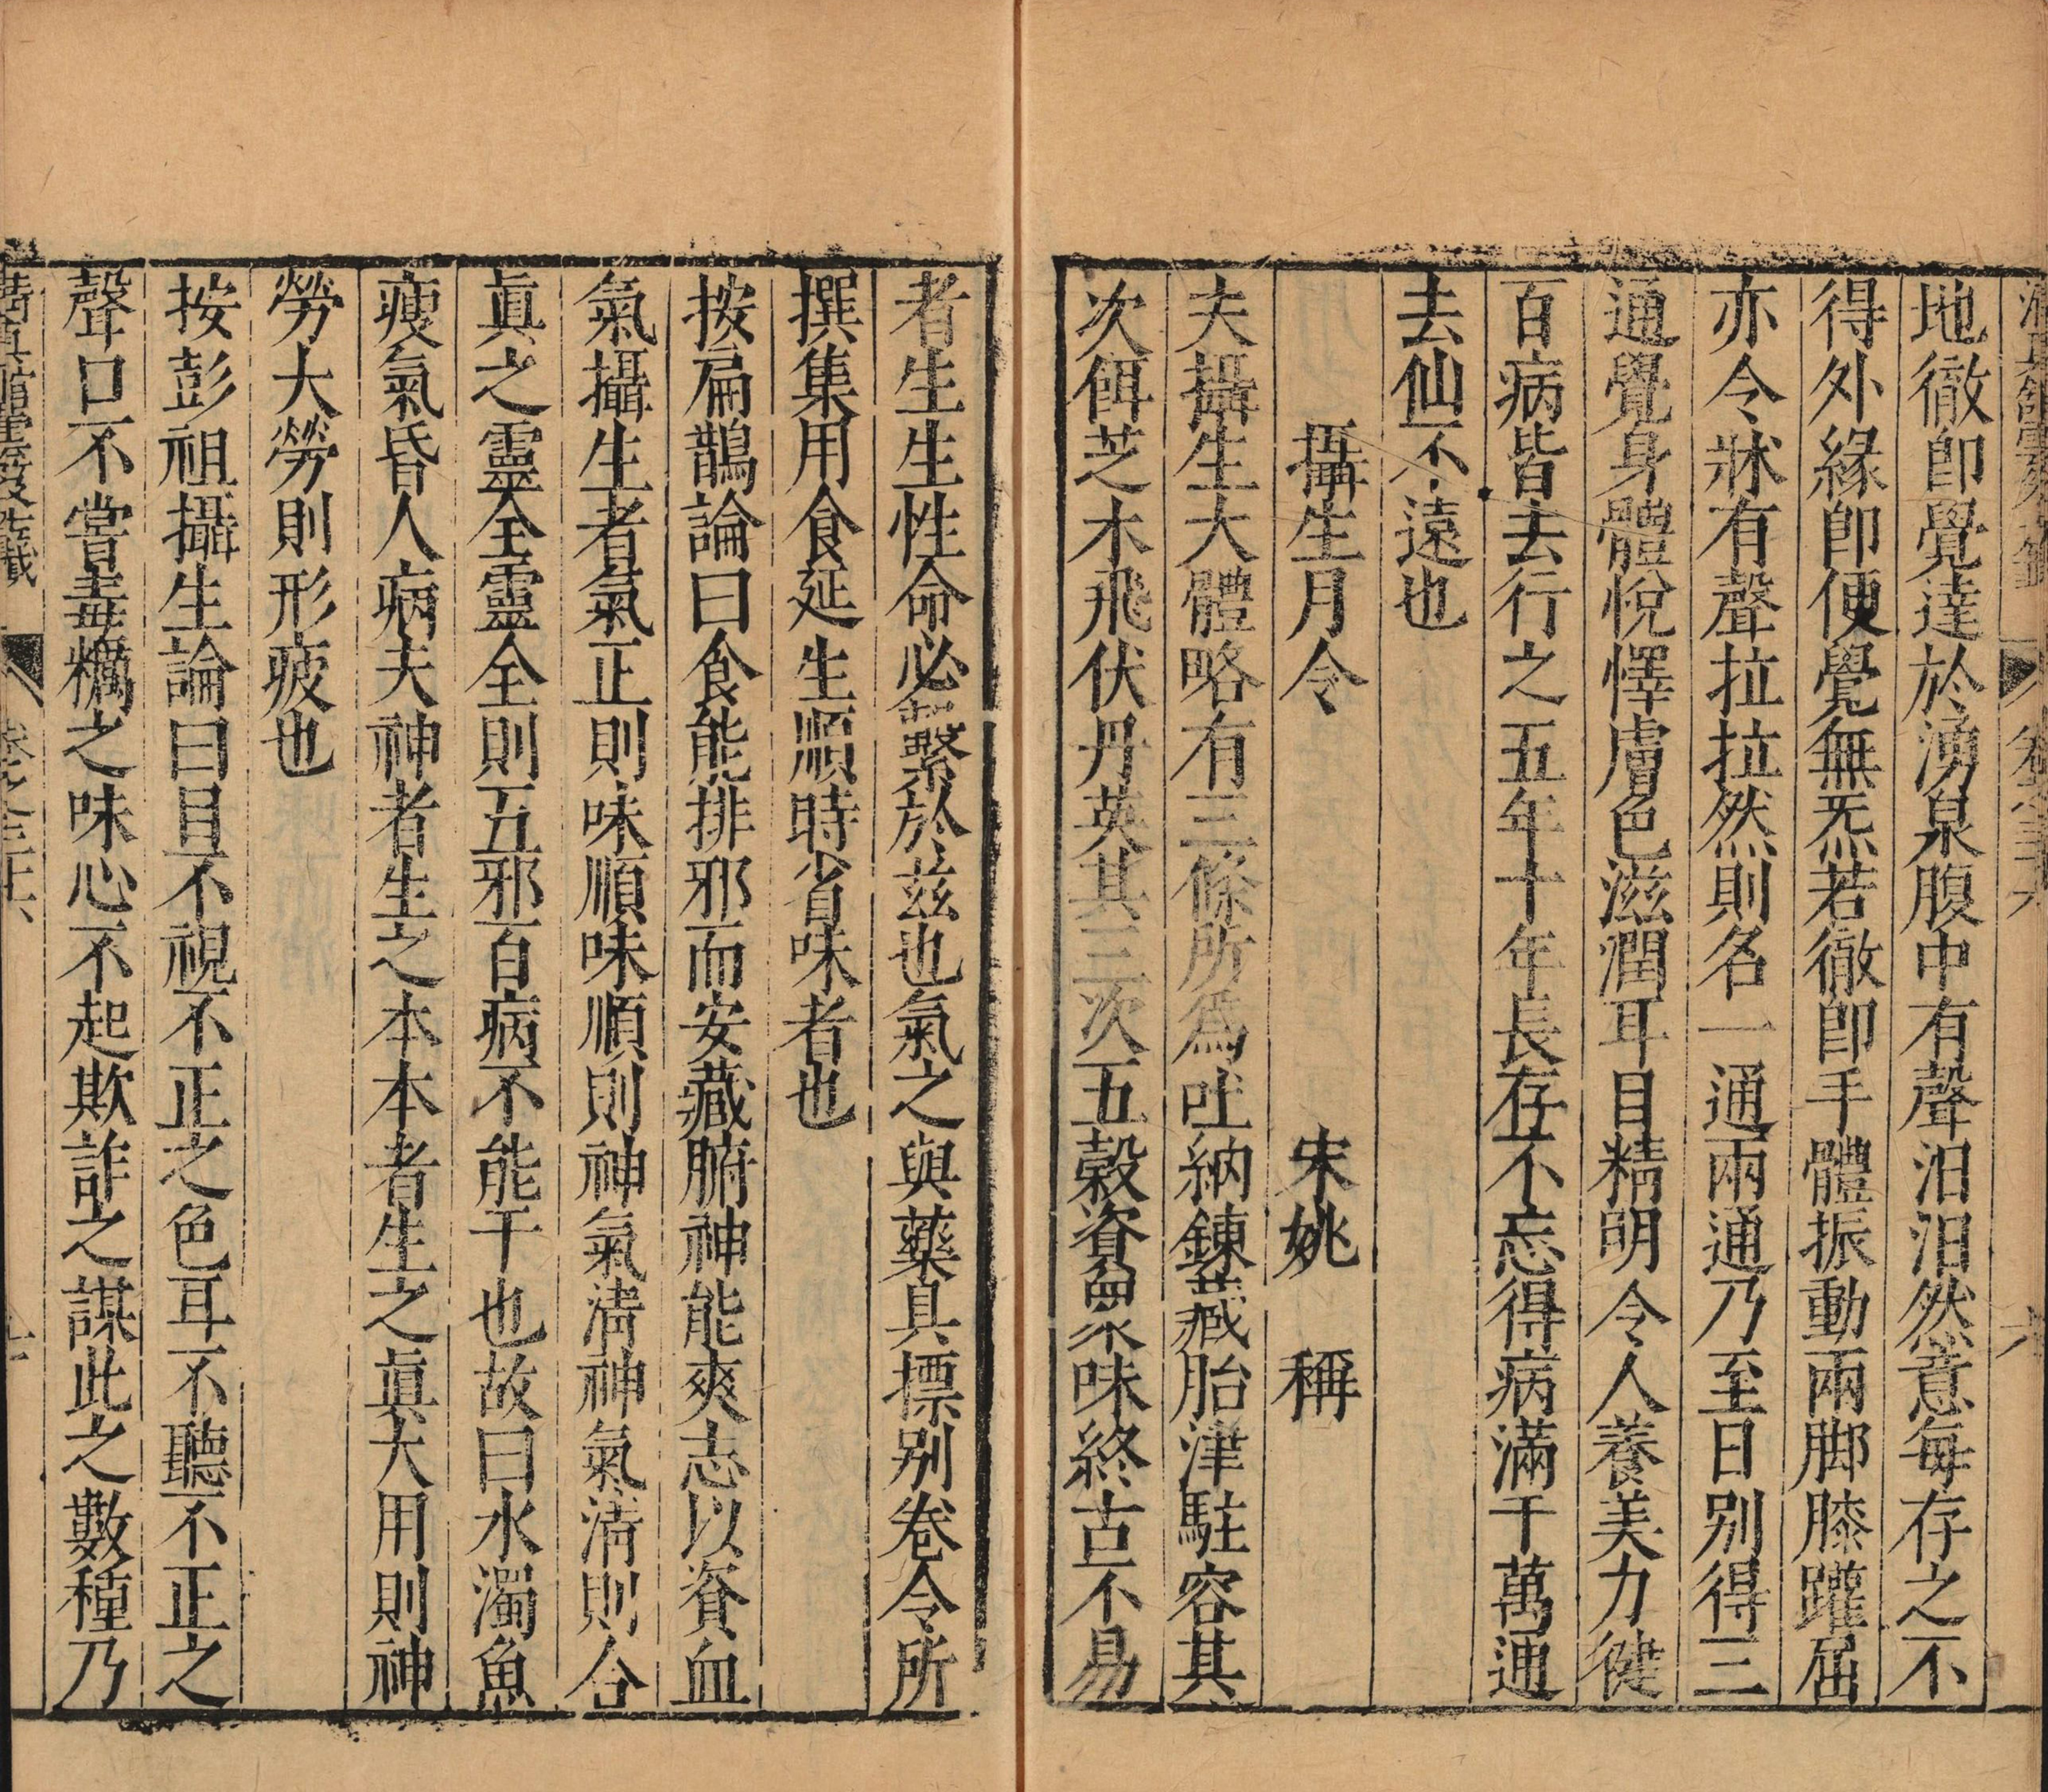 地徹即覺達於湧泉腹中有聲汩汩然意每存之不
得外緣即便覺無炁若徹即手體振動兩脚膝躍屈
亦令牀有聲拉拉然則名一通兩通乃至日别得三
通覺身體悅懌膚色滋潤耳目精明令人養美力健
百病皆去行之五年十年長存不忘得病滿千萬通
去仙不遠也
攝生月令　宋姚　稱
夫攝生大體略有三條所爲吐納鍊藏胎津駐容其
次餌芝木飛伏丹英其三次五穀資衆味終古不易
者生生性命必繫於茲也氣之與藥具摽别卷今所
撰集用食延生順時省味者也
按扁鵲論曰食能排邪而安藏腑神能爽志以資血
氣攝生者氣正則味順味順則神氣清神氣清則合
眞之靈全靈全則五邪百病不能干也故曰水濁魚
瘦氣昏人病夫神者生之本本者生之眞大用則神
勞大勞則形疲也
按彭祖攝生論曰目不視不正之色耳不聽不正之
聲口不嘗毒糲之味心不起欺詐之謀此之數種乃